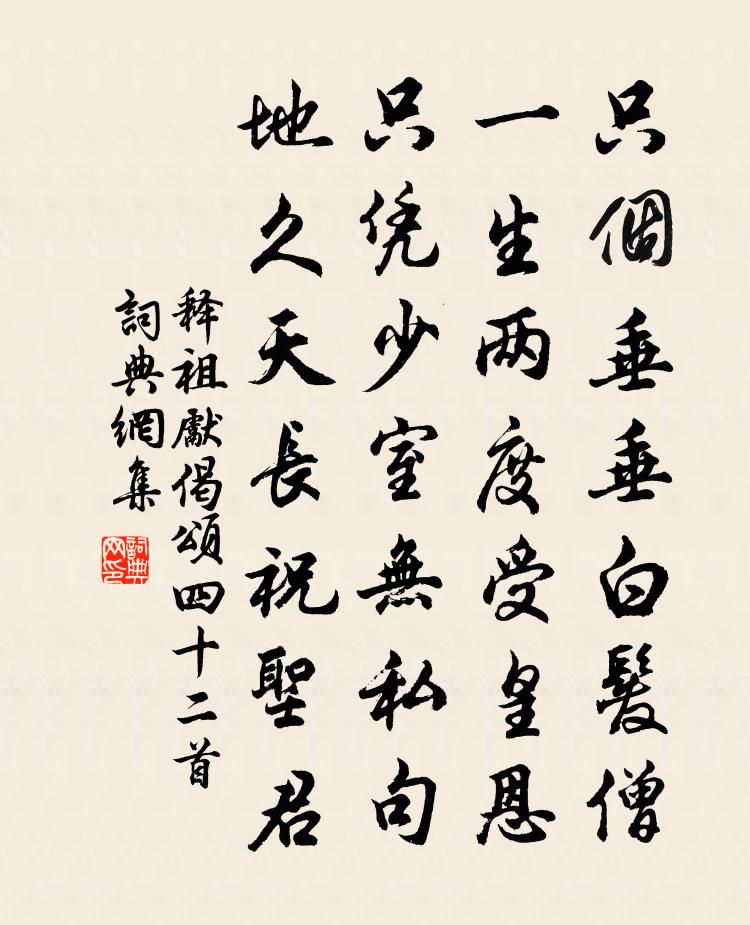 只個垂垂白髮僧
一生两度受皇恩
只凭少室無私句
地久天長祝聖君
释祖獻偈頌四十二首
詞典網集
詞典网印